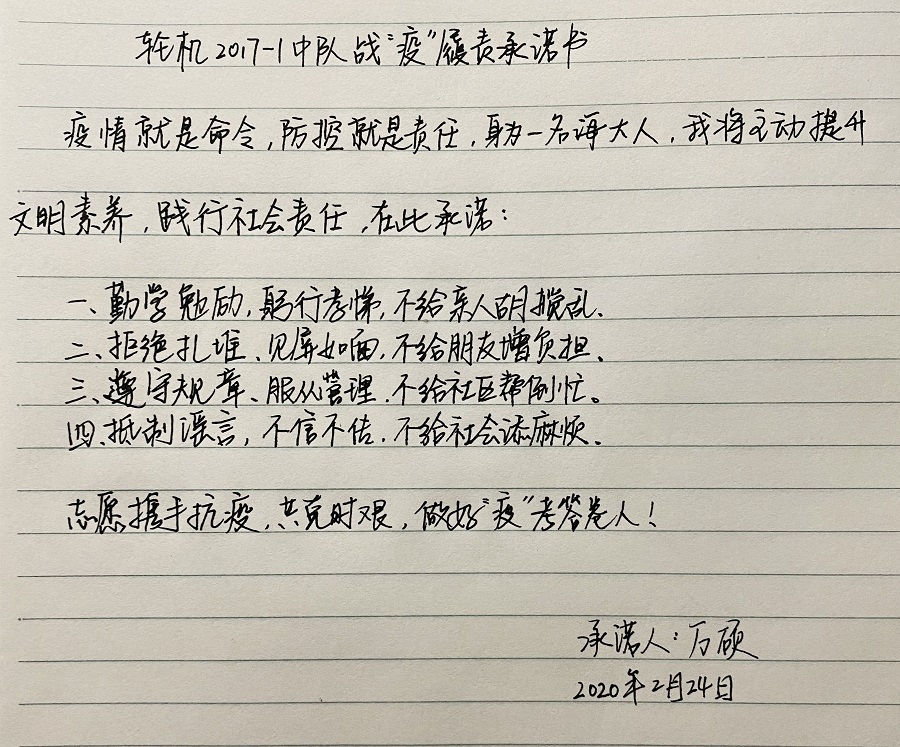 轮机2017-1中队战“疫”履责承诺书
疫情就是命令,防控就是责任,身为一名海大人,我将主动提升
文明素养,践行社会责任,在此承诺:
一、勤学勉励,躬行孝悌,不给亲人胡搅乱、
二、拒绝扎堆、见屏如面,不给朋友增负担、
三、遵守规章、服从管理、不给社区帮倒忙。
四、抵制谣言,不信不传、不给社会添麻烦、
志愿携手抗疫,共克时艰,做好“疫”考答卷人!
承诺人:万硕
2020年2月24日